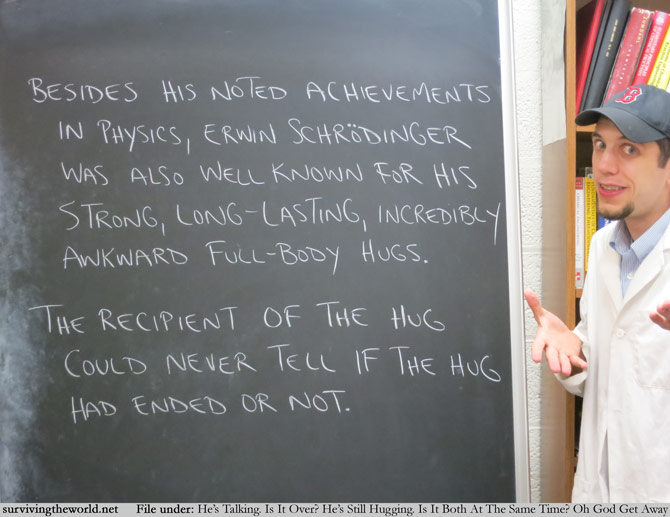 BESIDES HIS NOTED ACHIEVEMENTS
IN PHYSICS, ERWIN SCHRÖDINGER
WAS ALSO WELL KNOWN FOR HIS
STRONG, LONG-LASTING, INCREDIBLY
AWKWARD FULL-BODY HUGS.
THE RECIPIENT OF THE HUG
COULD NEVER TELL IF THE HUG
HAD ENDED OR NOT.
B
survivingtheworld.net File under: He's Talking. Is It Over? He's Still Hugging. Is It Both At The Same Time? Oh God Get Away